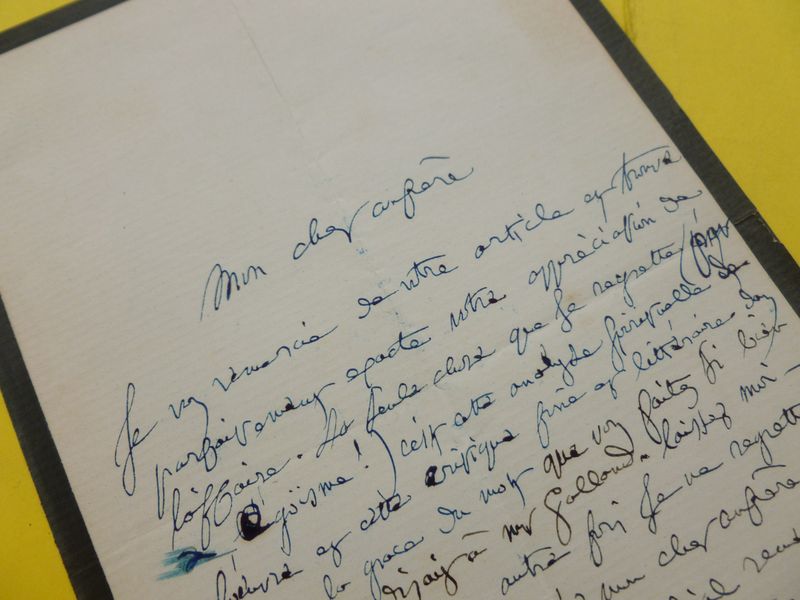 Mon cher confrère
Je vous remercie de votre article et trouve
parfaitement exacte votre appréciation de
l'affaire. La seule chose que je regrette (par
égoïsme!) c'est cette analyse spirituelle de
l'œuvre et cette critique fine et littéraire des
la grace du mot que vous faites si bien
disais à mr Galland. laissez moi
autre fois Je ne regrette
mon cher confrère